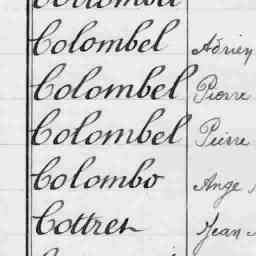 Colombel Adrien
Colombel Pierre
Colombel Pierre
Colombo Ange
Cottret Jean